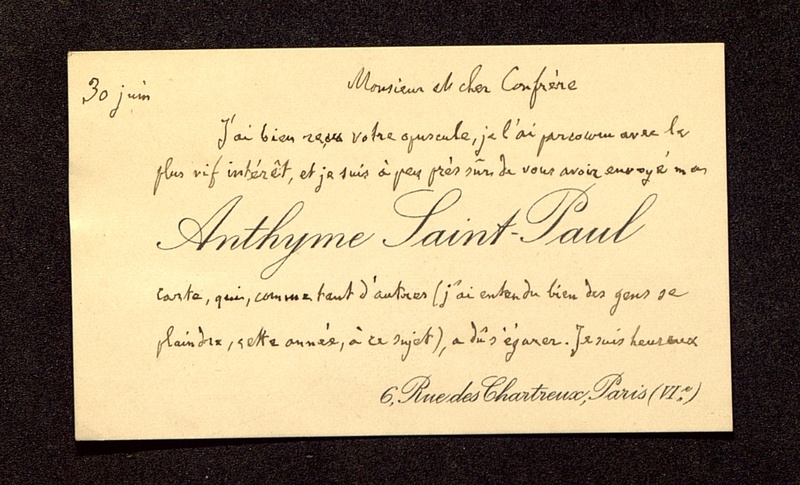 30 juin
Monsieur et cher Confrère
J'ai bien reçu votre opuscule, je l'ai parcouru avec le
plus vif intérêt, et je suis à peu près sûr de vous avoir envoyé ma
Anthyme Saint-Paul
carte, qui, comme tant d'autres (j'ai entendu bien des gens se
plaindre, cette année, à ce sujet), a dû s'égarer. Je suis heureux
6, Rue des Chartreux, Paris (VIe)